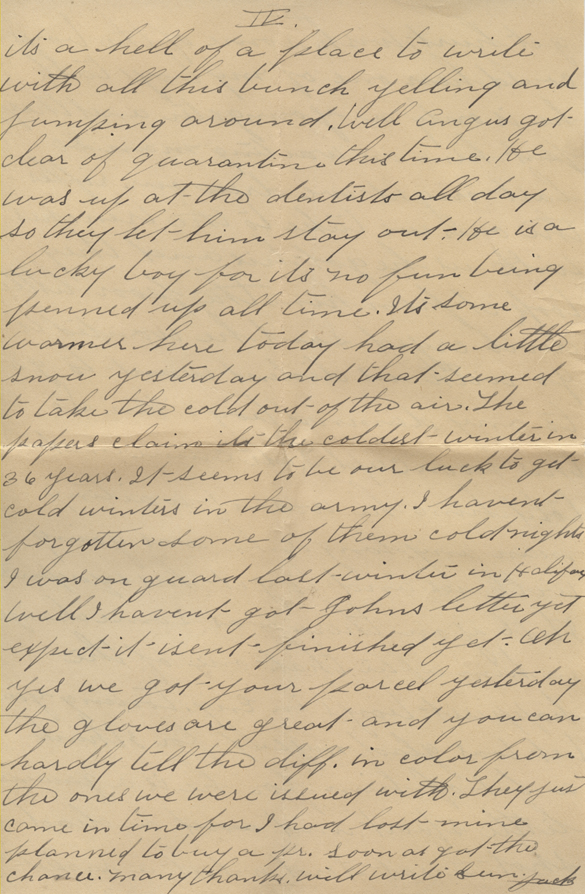 IV.
its a hell of a place to write
with all this bunch yelling and
jumping around. Well Angus got
clear of quarantine this time. He
was up at the dentists all day
so they let him stay out. He is a
lucky boy for its no fun being
penned up all time. Its some
warmer here today had a little
snow yesterday and that seemed
to take the cold out of the air. The
papers claim its the coldest winter in
36 years. It seems to be our luck to get
cold winters in the army. I havent
forgotten some of them cold nights
I was on guard last winter in Halifax
well I havent got Johns letter yet
expect it isent finished yet. Oh
yes we got your parcel yesterday
the gloves are great and you can
hardly tell the diff. in color from
the ones we were issued with. They just
came in time for I had lost mine
planned to buy a pr. soon as got the
chance. many thanks. will write Sun. Jack